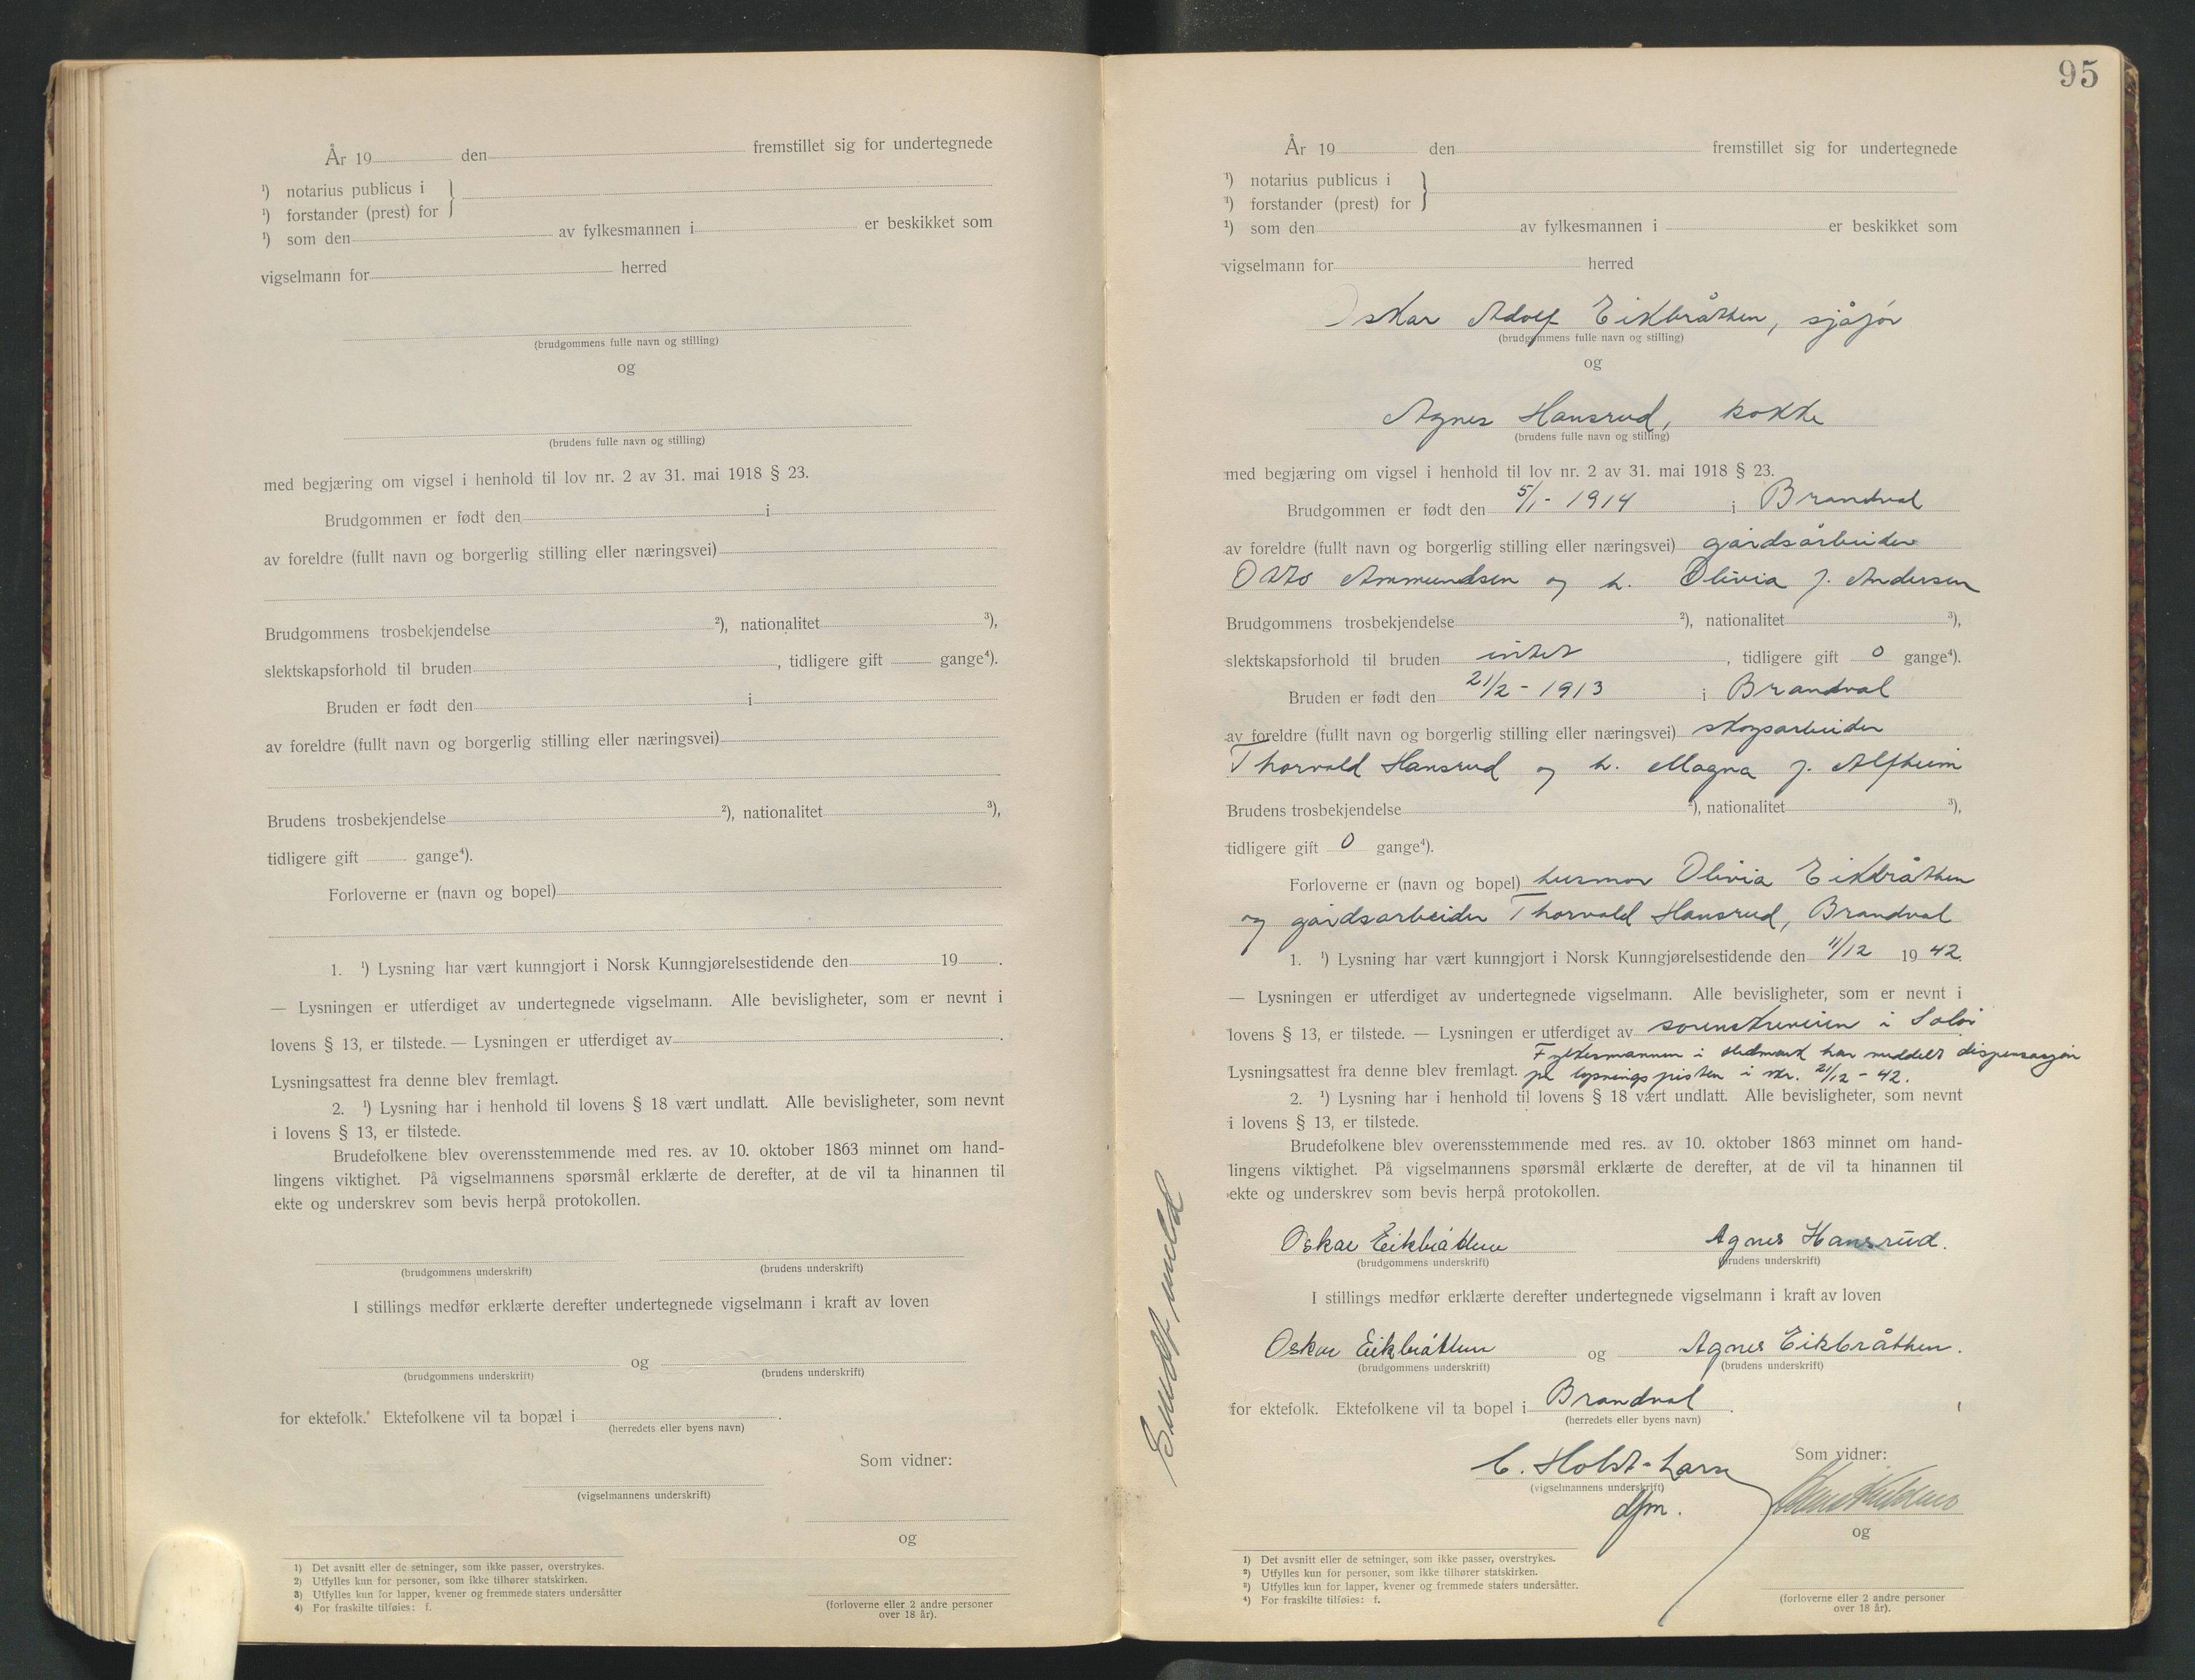 År 19 den fremstillet sig for undertegnede
¹) notarius publicus i
¹) forstander (prest) for }
¹) som den av fylkesmannen i er beskikket som
vigselmann for herred
(brudgommens fulle navn og stilling)
og
(brudens fulle navn og stilling)
med begjæring om vigsel i henhold til lov nr. 2 av 31. mai 1918 § 23.
Brudgommen er født den i
av foreldre (fullt navn og borgerlig stilling eller næringsvei)
Brudgommens trosbekjendelse ²), nationalitet ³),
slektskapsforhold til bruden , tidligere gift gange⁴).
Bruden er født den i
av foreldre (fullt navn og borgerlig stilling eller næringsvei)
Brudens trosbekjendelse ²), nationalitet ³),
tidligere gift gange⁴).
Forloverne er (navn og bopel)
1. ¹) Lysning har vært kunngjort i Norsk Kunngjørelsestidende den 19 .
— Lysningen er utferdiget av undertegnede vigselmann. Alle bevisligheter, som er nevnt i
lovens § 13, er tilstede. — Lysningen er utferdiget av .
Lysningsattest fra denne blev fremlagt.
2. ¹) Lysning har i henhold til lovens § 18 vært undlatt. Alle bevisligheter, som nevnt
i lovens § 13, er tilstede.
Brudefolkene blev overensstemmende med res. av 10. oktober 1863 minnet om hand-
lingens viktighet. På vigselmannens spørsmål erklærte de derefter, at de vil ta hinannen til
ekte og underskrev som bevis herpå protokollen.
(brudgommens underskrift) (brudens underskrift)
I stillings medfør erklærte derefter undertegnede vigselmann i kraft av loven
og
(brudgommens underskrift) (brudens underskrift)
for ektefolk. Ektefolkene vil ta bopæl i .
(herredets eller byens navn)
Som vidner:
(vigselmannens underskrift)
og
1) Det avsnitt eller de setninger, som ikke passer, overstrykes.
2) Utfylles kun for personer, som ikke tilhører statskirken.
3) Utfylles kun for lapper, kvener og fremmede staters undersåtter
4) For fraskilte tilføies: f.
(forloverne eller 2 andre personer
over 18 år).
95
År 19 den fremstillet sig for undertegnede
¹) notarius publicus i
¹) forstander (prest) for }
¹) som den av fylkesmannen i er beskikket som
vigselmann for herred
Oskar Adolf Eikbråthen, sjåfør
(brudgommens fulle navn og stilling)
og
Agnes Hansrud, kokke
(brudens fulle navn og stilling)
med begjæring om vigsel i henhold til lov nr. 2 av 31. mai 1918 § 23.
Brudgommen er født den 5/1 - 1914 i Brandval
av foreldre (fullt navn og borgerlig stilling eller næringsvei) gårdsarbeider
Otto Ammundsen og h. Olivia f. Andersen
Brudgommens trosbekjendelse ²), nationalitet ³),
slektskapsforhold til bruden intet , tidligere gift 0 gange⁴).
Bruden er født den 21/2 - 1913 i Brandval
av foreldre (fullt navn og borgerlig stilling eller næringsvei) skogsarbeider
Thorvald Hansrud og h. Magna f. Alfheim
Brudens trosbekjendelse ²), nationalitet ³),
tidligere gift 0 gange⁴).
Forloverne er (navn og bopel) husmor Olivia Eikbråthen
og gårdsarbeider Thorvald Hansrud, Brandval
1. ¹) Lysning har vært kunngjort i Norsk Kunngjørelsestidende den 11/12 1942.
— Lysningen er utferdiget av undertegnede vigselmann. Alle bevisligheter, som er nevnt i
lovens § 13, er tilstede. — Lysningen er utferdiget av sorenskriveren i Solør
Fylkesmannen i Hedmark har meddelt dispensasjon
Lysningsattest fra denne blev fremlagt. på lysningsfristen i skr. 21/12 - 42.
2. ¹) Lysning har i henhold til lovens § 18 vært undlatt. Alle bevisligheter, som nevnt
i lovens § 13, er tilstede.
Brudefolkene blev overensstemmende med res. av 10. oktober 1863 minnet om hand-
lingens viktighet. På vigselmannens spørsmål erklærte de derefter, at de vil ta hinannen til
ekte og underskrev som bevis herpå protokollen.
Oskar Eikbråthen Agnes Hansrud.
(brudgommens underskrift) (brudens underskrift)
I stillings medfør erklærte derefter undertegnede vigselmann i kraft av loven
Oskar Eikbråthen og Agnes Eikbråthen.
(brudgommens underskrift) (brudens underskrift)
for ektefolk. Ektefolkene vil ta bopel i Brandval .
(herredets eller byens navn)
Som vidner:
C. Holst-Larsen
(vigselmannens underskrift)
dfm.
og
1) Det avsnitt eller de setninger, som ikke passer, overstrykes.
2) Utfylles kun for personer, som ikke tilhører statskirken.
3) Utfylles kun for lapper, kvener og fremmede staters undersåtter.
4) For fraskilte tilføies: f.
(forloverne eller 2 andre personer
over 18 år).